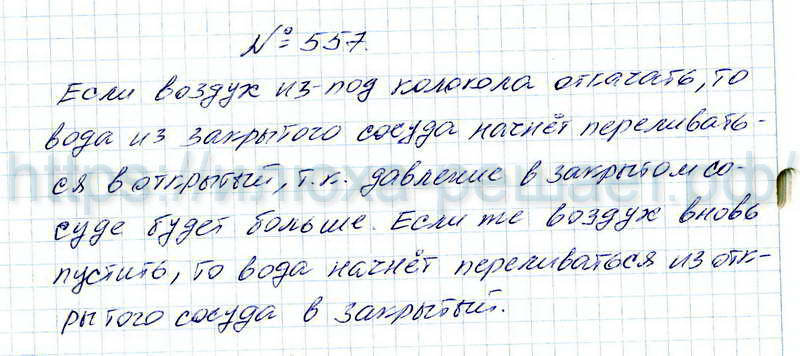 № 557.
Если воздух из-под колокола откачать, то
вода из закрытого сосуда начнёт переливать-
ся в открытый, т.к. давление в закрытом со-
суде будет больше. Если же воздух вновь
пустить, то вода начнёт переливаться из отк-
рытого сосуда в закрытый.